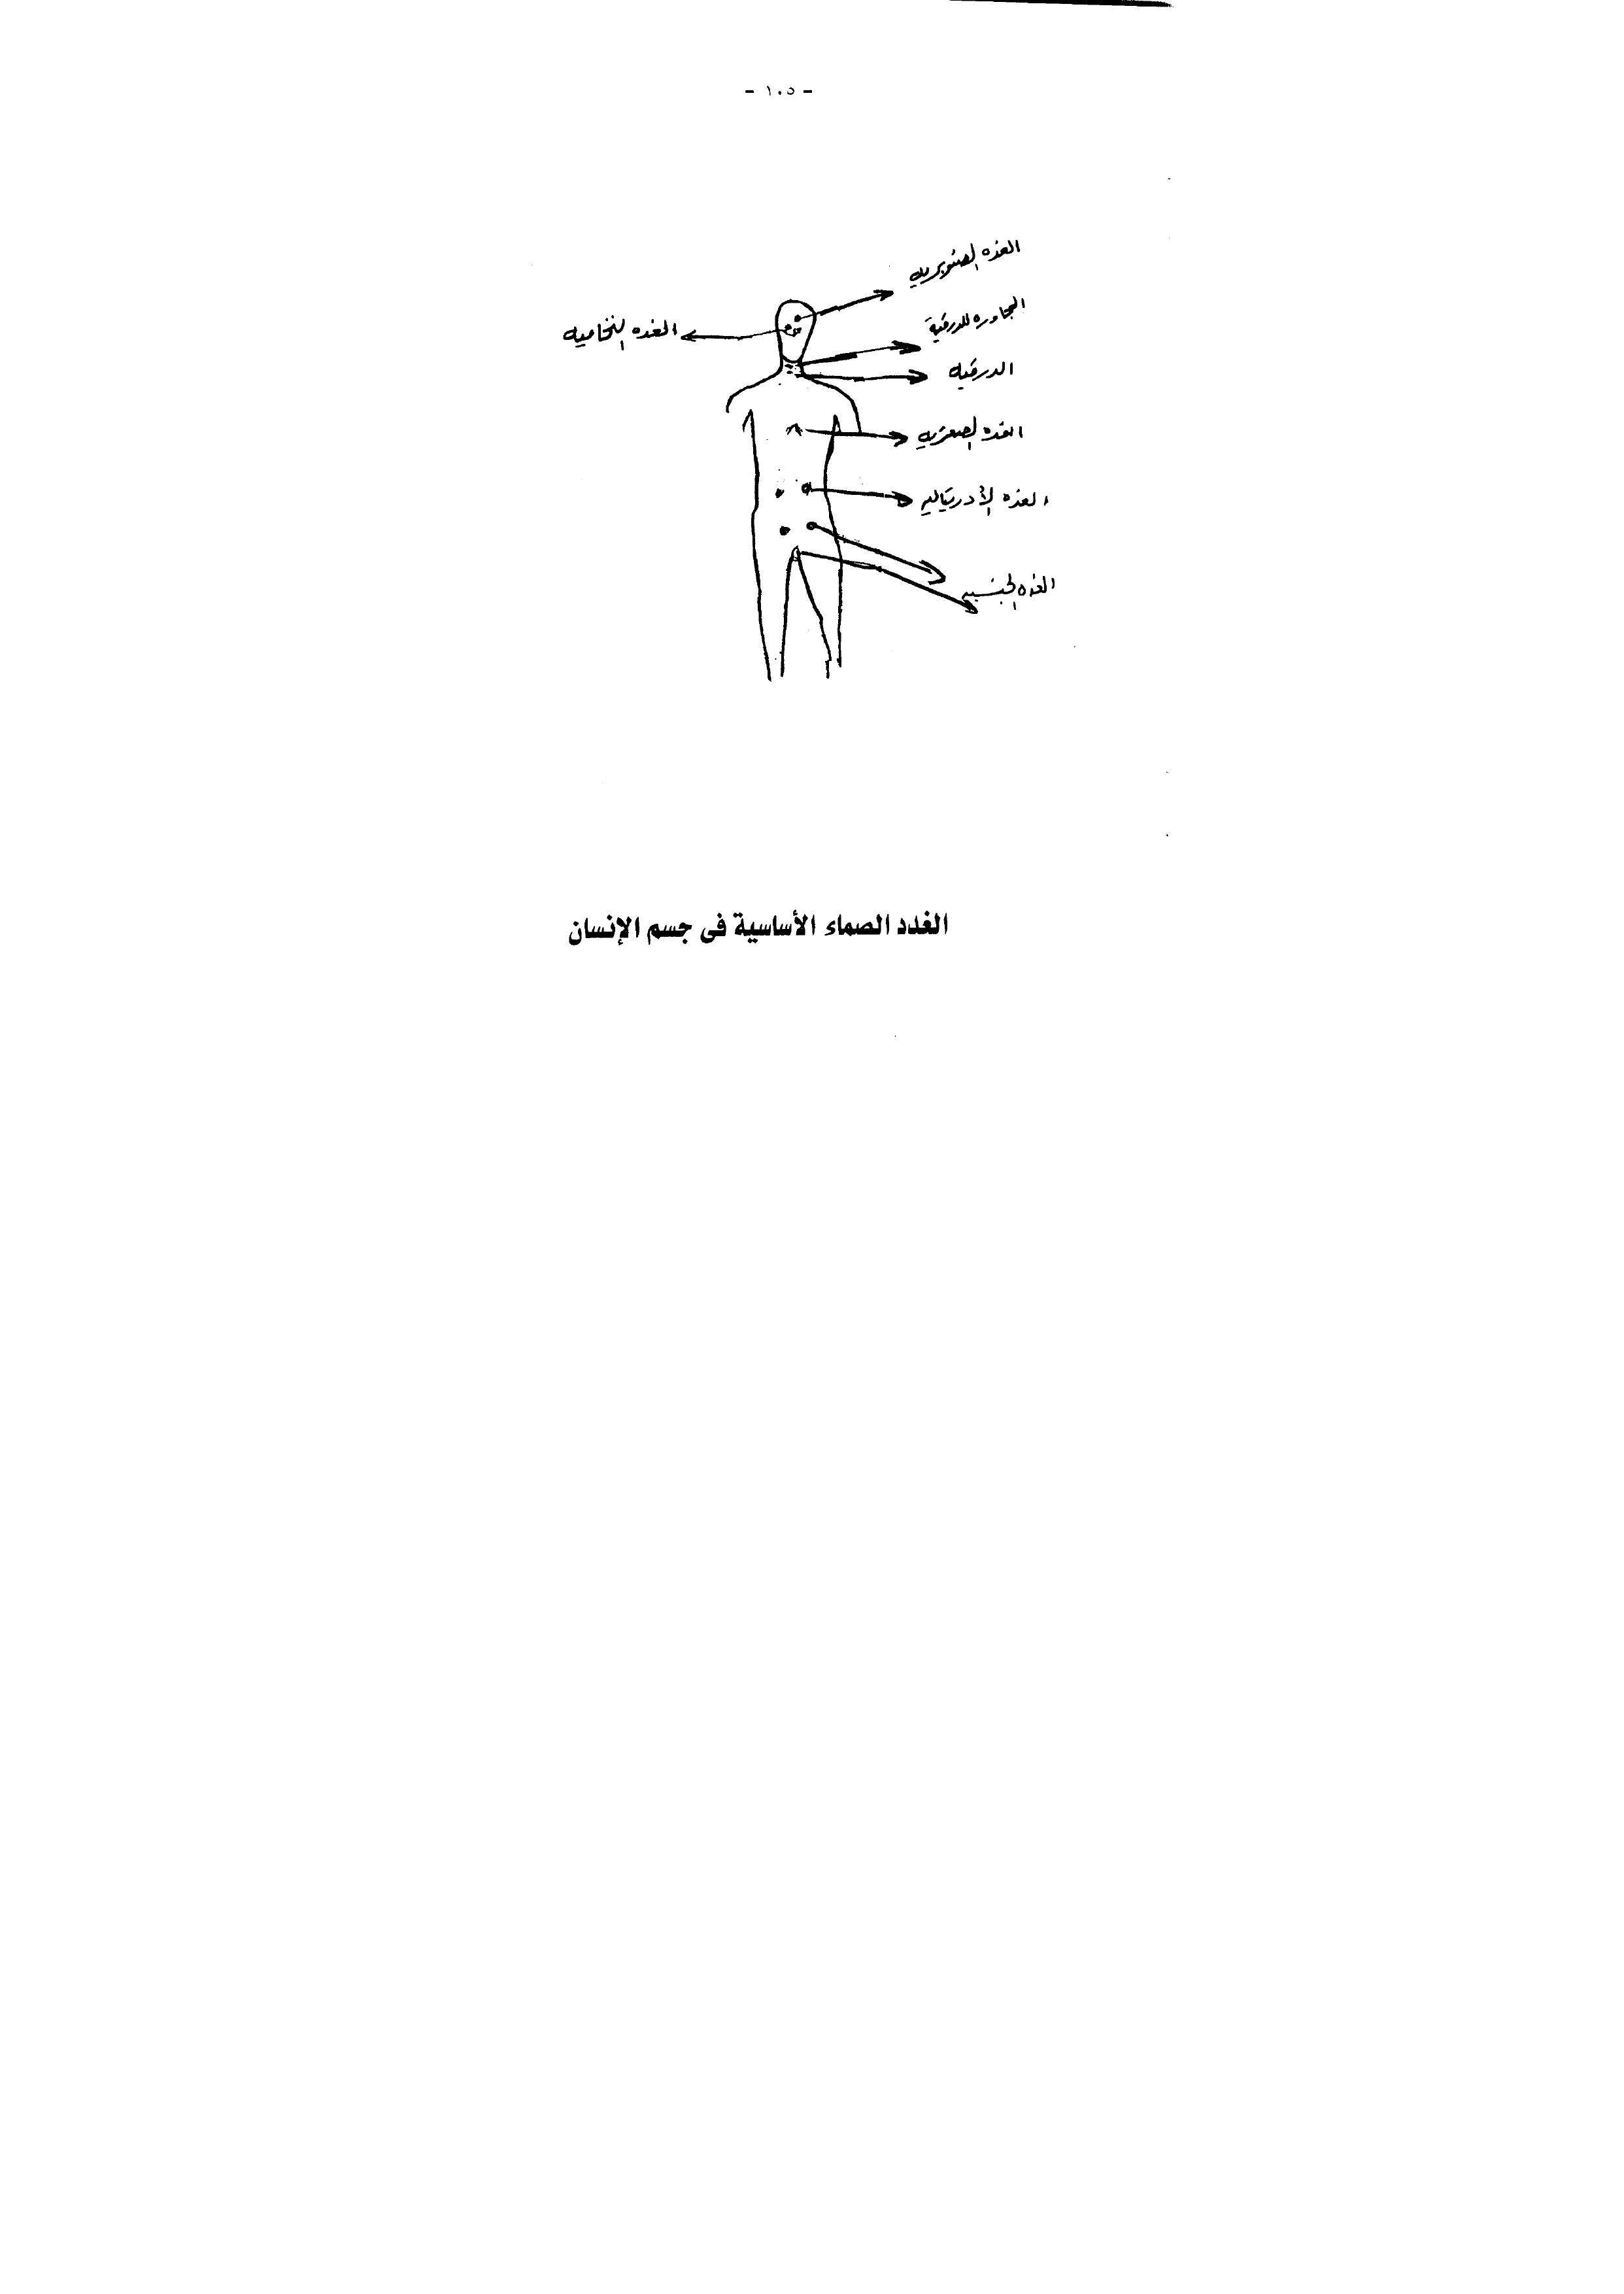 - ١٠٥ -
الغده الصنوبريه
المجاوره للدرقية
الغده النخاميه
الدرقيه
الغده الصعتريه
الغده الأدريناليه
الغده الجنسيه
الغدد الصماء الأساسية فى جسم الإنسان